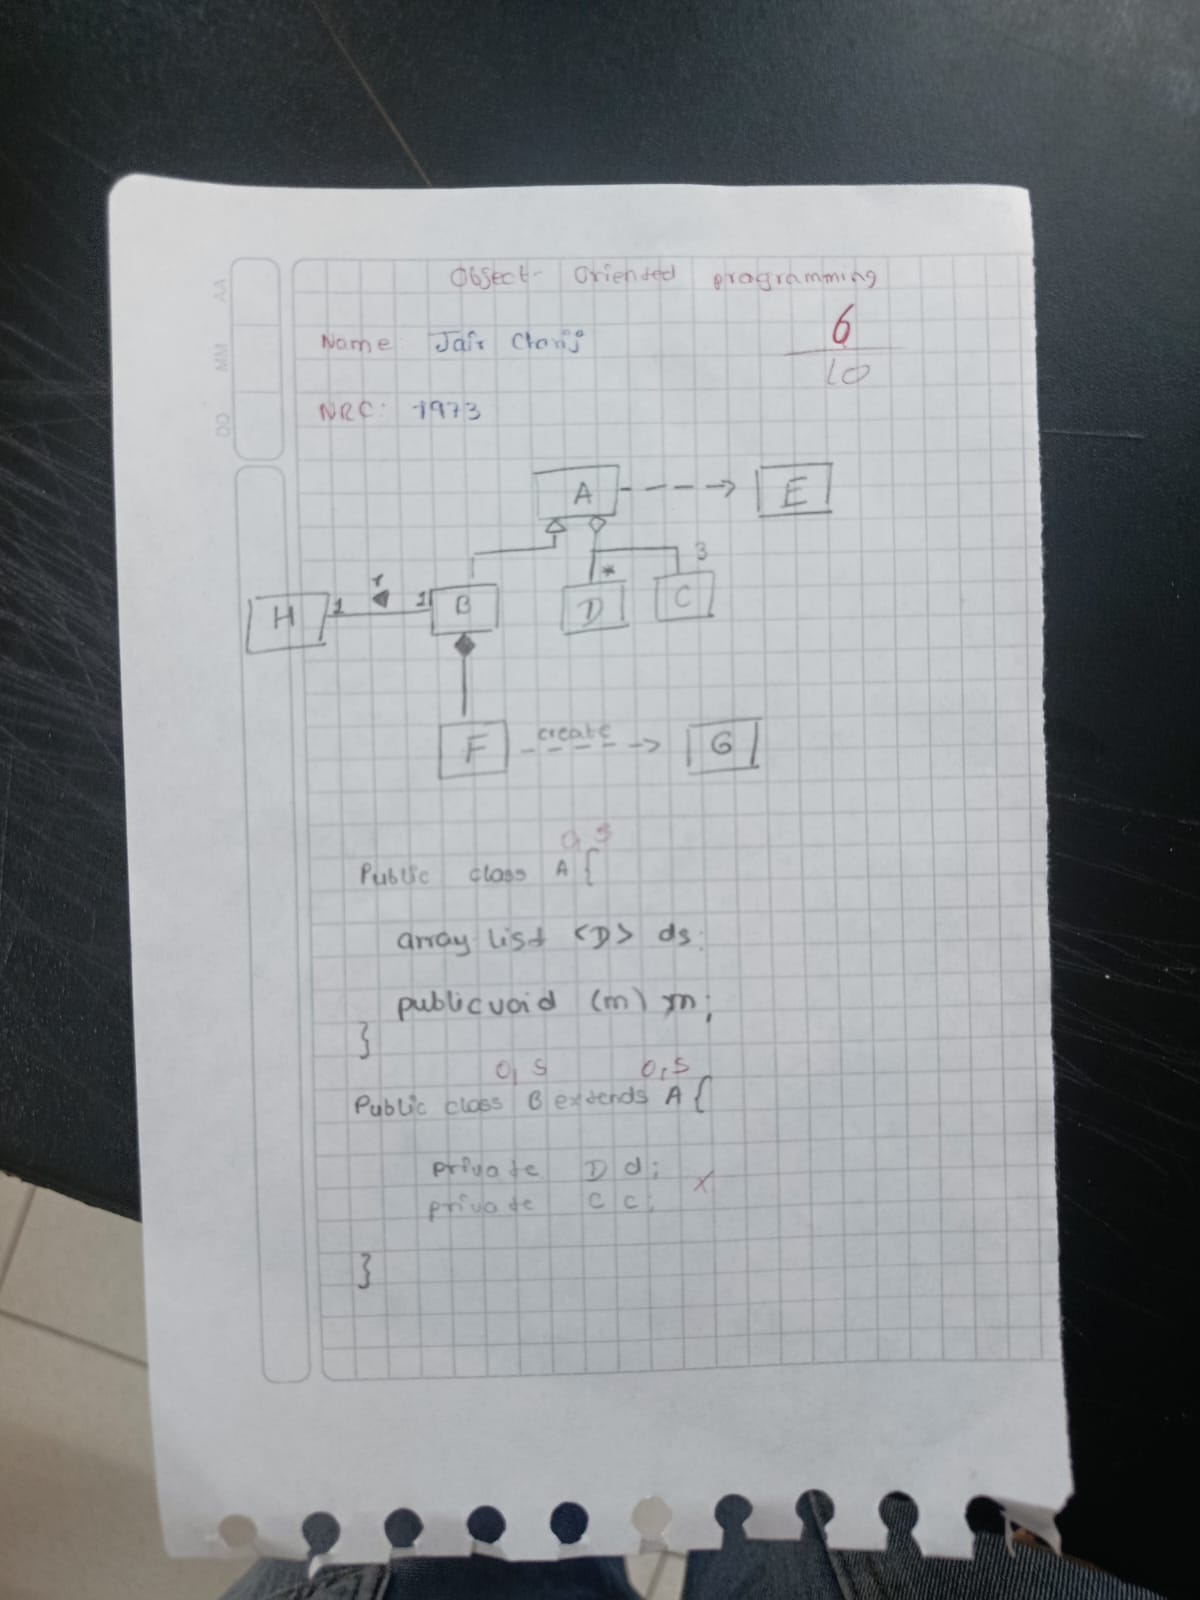 AA
MM
DD
Object- Oriended programming
Name: Jair Chanij
6
10
NRC: 1973
A
E
r
3
H 1 1 B
*
D
C
F create G
0,5
Public class A {
array list <D> ds;
public void (m) m;
}
0,5 0,5
Public class B extends A {
private D d;
X
private C c;
}